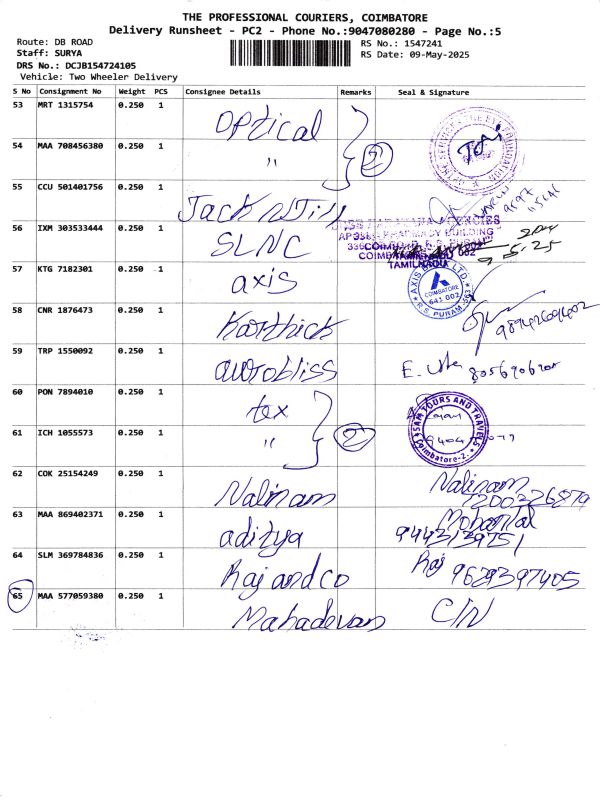 THE PROFESSIONAL COURIERS, COIMBATORE
Delivery Runsheet - PC2 - Phone No.:9047080280 - Page No.:5
Route: DB ROAD
Staff: SURYA
DRS No.: DCJB154724105
Vehicle: Two Wheeler Delivery
RS No.: 1547241
RS Date: 09-May-2025
S No Consignment No Weight PCS Consignee Details Remarks Seal & Signature
53 MRT 1315754 0.250 1 Optical
54 MAA 708456380 0.250 1 " 2
55 CCU 501401756 0.250 1 Jack
56 IXM 303533444 0.250 1 SLNC
PHARMACY BUILDING
COIMBATORE
TAMILNADU
57 KTG 7182301 0.250 1 axis
AXIS BANK LTD.
COIMBATORE
641 002
R.S. PURAM
58 CNR 1876473 0.250 1 Karthick
59 TRP 1550092 0.250 1 aurobliss
60 PON 7894010 0.250 1 tex
61 ICH 1055573 0.250 1 " 2
TOURS AND TRAVELS
Coimbatore-2.
62 COK 25154249 0.250 1 Nalinam Nalinam
7200326879
63 MAA 869402371 0.250 1 aditya
9443139751
64 SLM 369784836 0.250 1 Raj and co Raj 9629397405
65 MAA 577059380 0.250 1 Mahadevan C/N